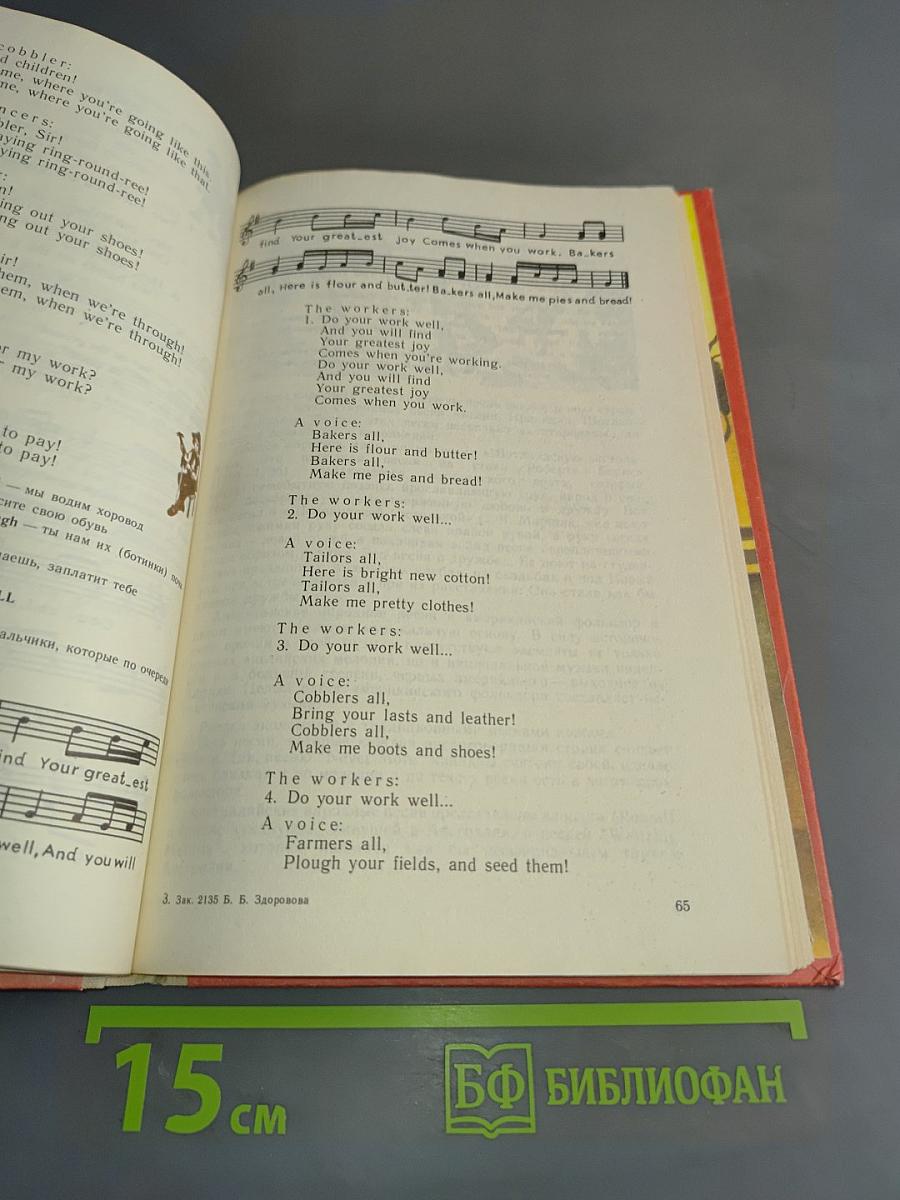 cobbler:
d children!
me, where you're going like this.
me, where you're going like that.
ncers:
bler, Sir!
aying ring-round-ree!
ying ring-round-ree!
r:
n!
ing out your shoes!
ng out your shoes!
ir!
hem, when we're through!
em, when we're through!
or my work?
r my work?
to pay!
to pay!
— мы водим хоровод
сите свою обувь
gh — ты нам их (ботинки) поч
аешь, заплатит тебе
LL
альчики, которые по очереди
ind Your great_est
well, And you will
find Your great_est joy Comes when you work. Ba_kers
all, Here is flour and but_ter! Ba_kers all, Make me pies and bread!
The workers:
1. Do your work well,
And you will find
Your greatest joy
Comes when you're working.
Do your work well,
And you will find
Your greatest joy
Comes when you work.
A voice:
Bakers all,
Here is flour and butter!
Bakers all,
Make me pies and bread!
The workers:
2. Do your work well...
A voice:
Tailors all,
Here is bright new cotton!
Tailors all,
Make me pretty clothes!
The workers:
3. Do your work well...
A voice:
Cobblers all,
Bring your lasts and leather!
Cobblers all,
Make me boots and shoes!
The workers:
4. Do your work well...
A voice:
Farmers all,
Plough your fields, and seed them!
3. Зак. 2135 Б. Б. Здоровова
65
15 см
БФ БИБЛИОФАН